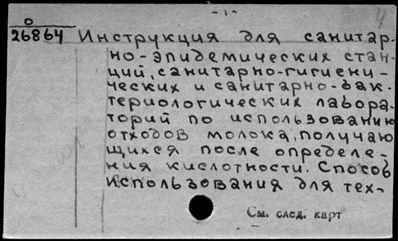 - 1 -
4
0
26864 Инструкция для санитар-
но-эпидемических стан-
ций, санитарно-гигиени-
ческих и санитарно-бак-
териологических лабора-
торий по использованию
отходов молока, получаю
щихся после определе-
ния кислотности. Способ
использования для тех-
См. след. карт